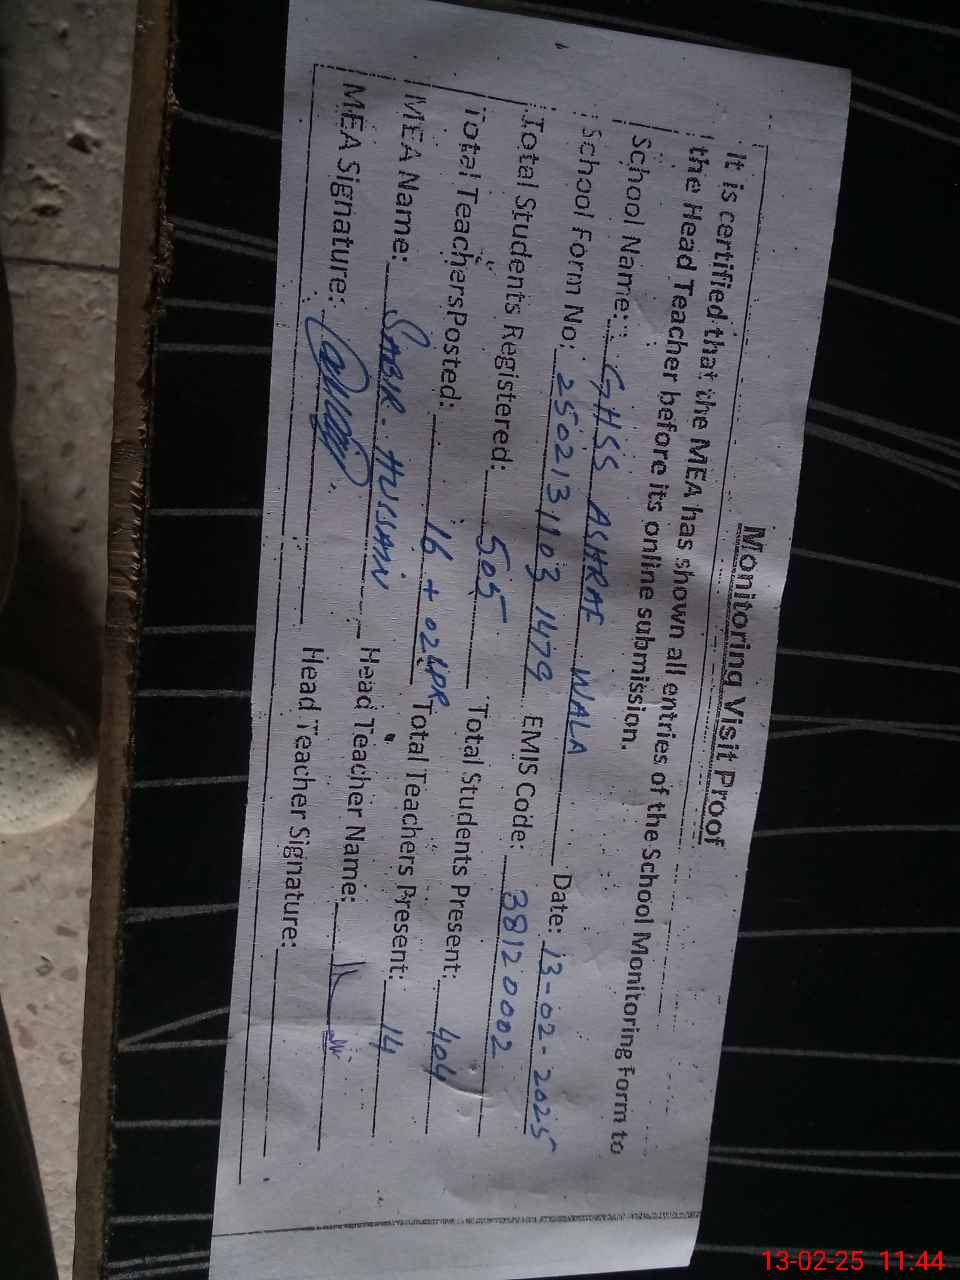 Monitoring Visit Proof
It is certified that the MEA has shown all entries of the School Monitoring Form to
the Head Teacher before its online submission.
School Name: GHSS ASHRAF WALA Date: 13-02-2025
School Form No: 2502131103 1479 EMIS Code: 38120002
Total Students Registered: 505 Total Students Present: 404
Total Teachers Posted: 16 + 02 LPR Total Teachers Present: 14
MEA Name: SABIR HUSSAIN Head Teacher Name:
MEA Signature: Head Teacher Signature:
13-02-25 11.44